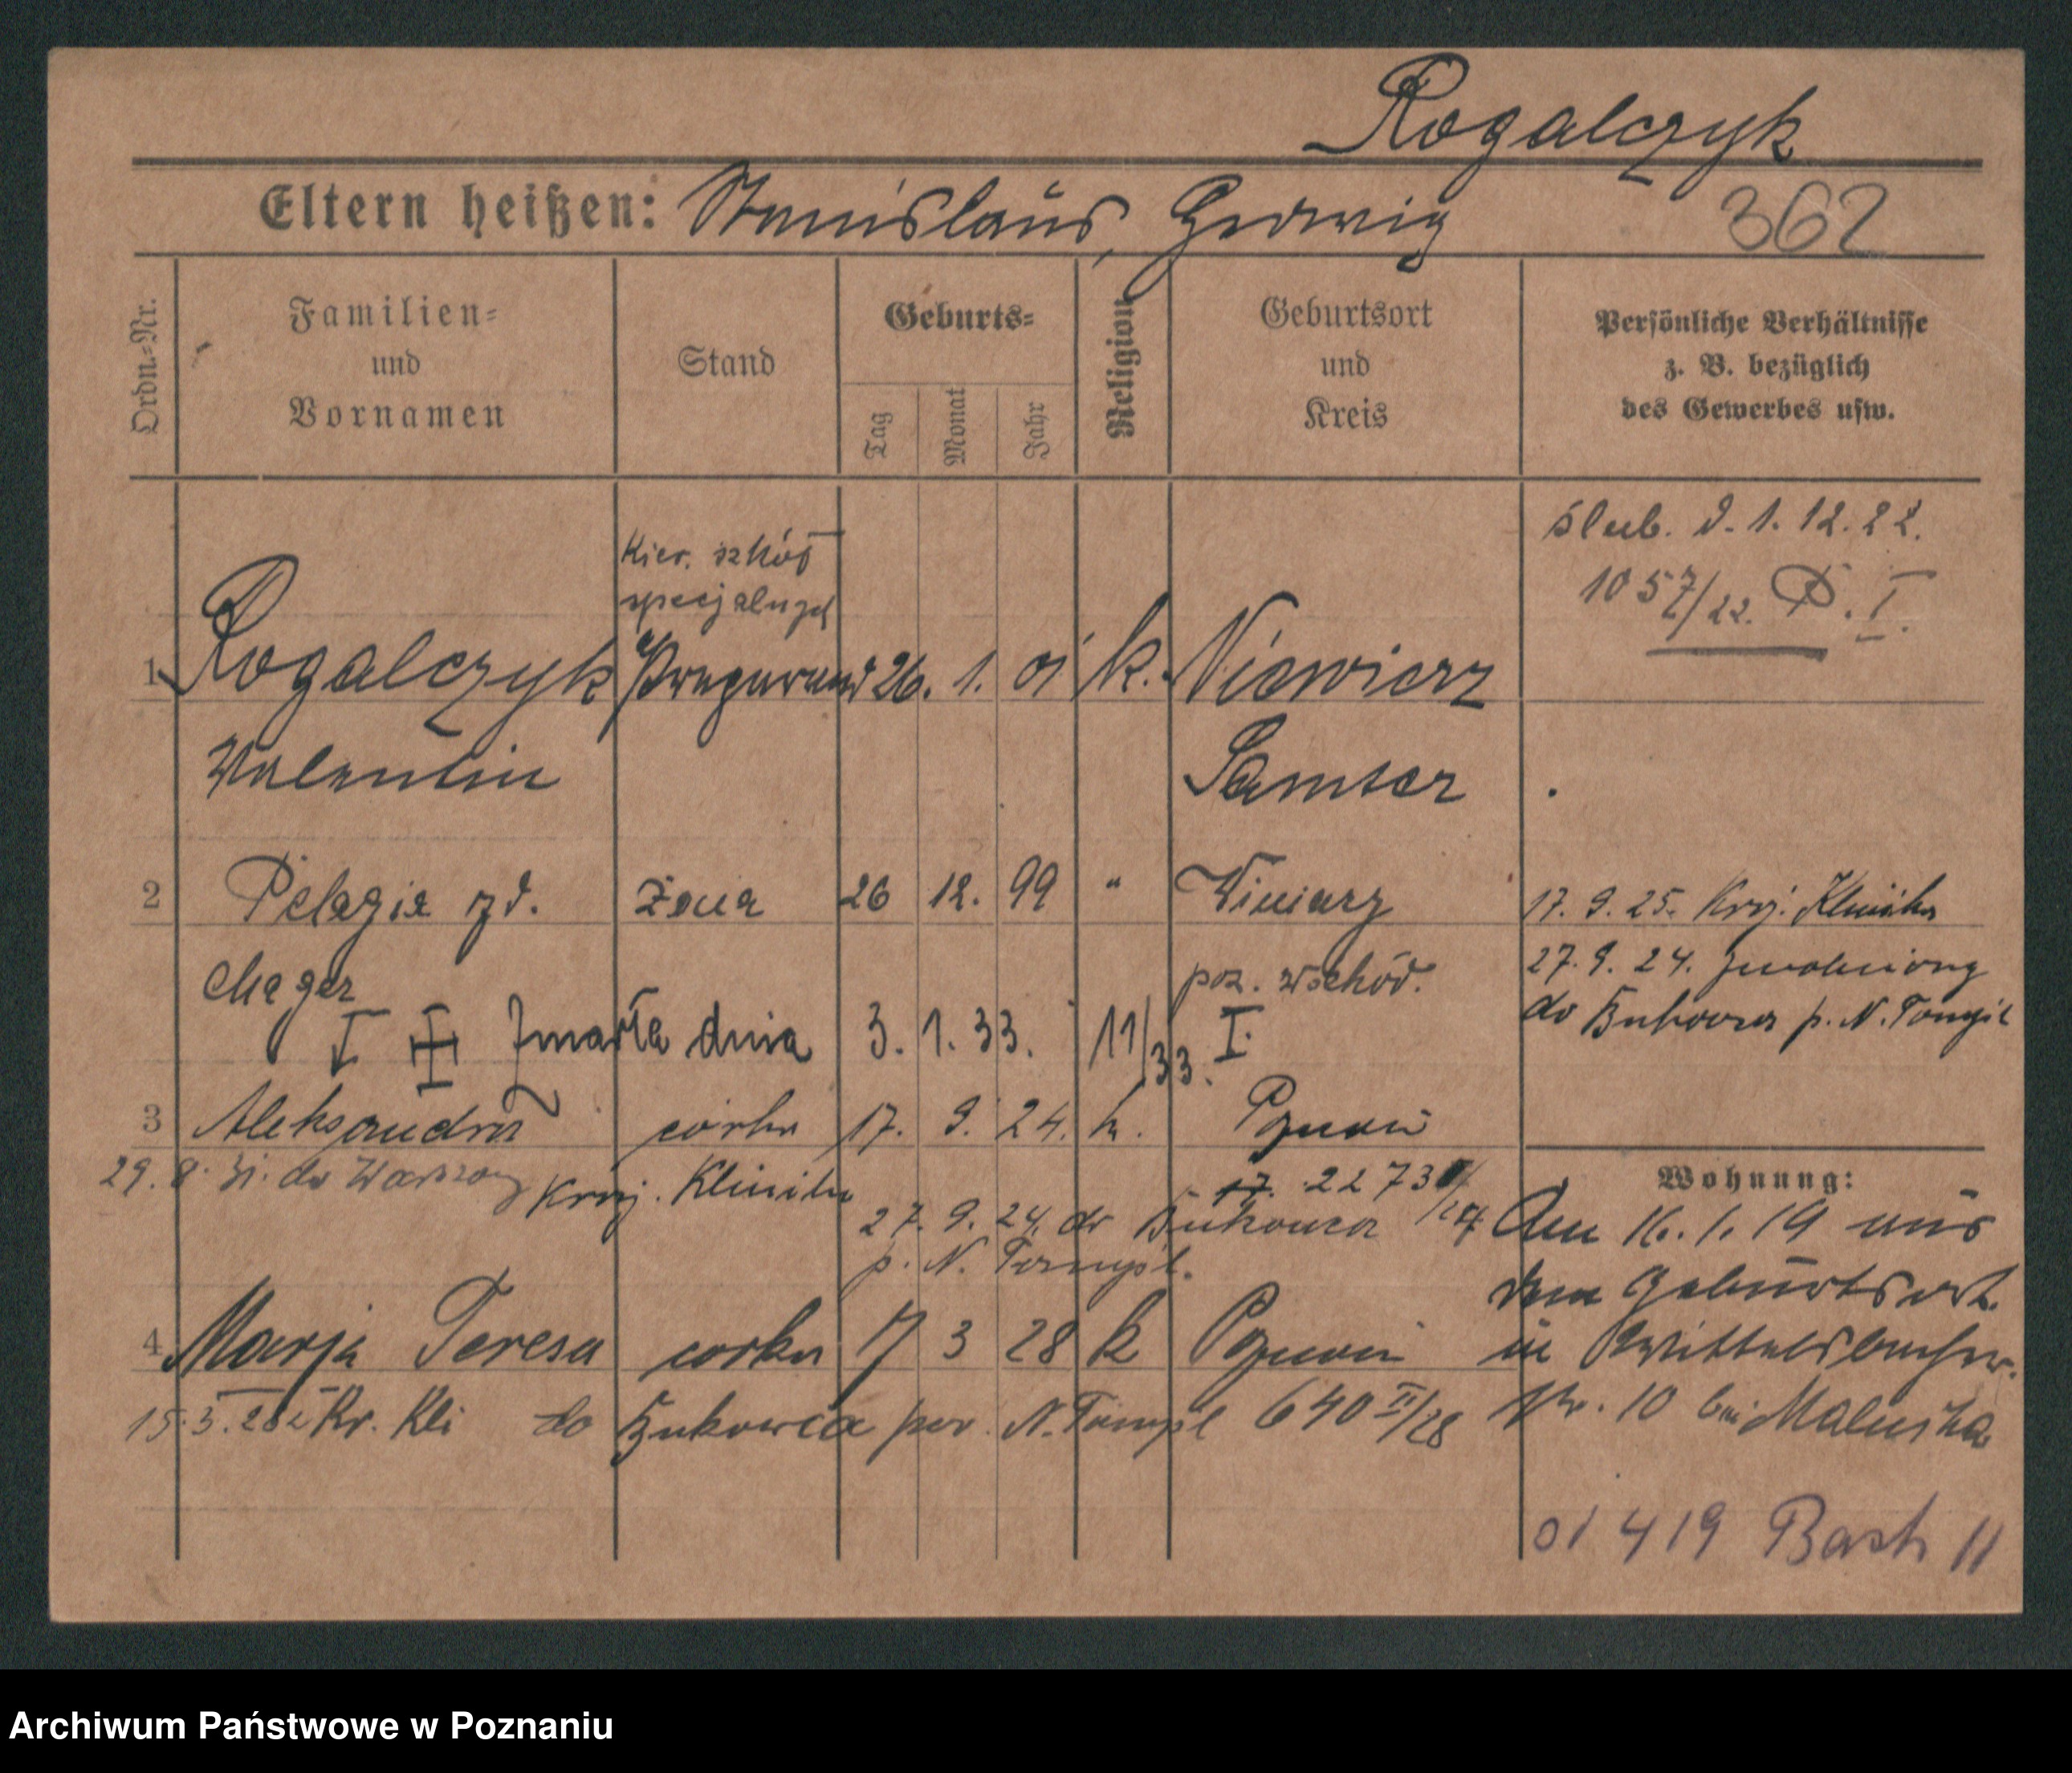 Rogalczyk
Eltern heißen: Stanislaus, Hedwig 362
Ordn.=Nr.
Familien=
und
Vornamen
Stand
Geburts=
Tag
Monat
Jahr
Religion
Geburtsort
und
Kreis
Persönliche Verhältnisse
z. B. bezüglich
des Gewerbes usw.
ślub. d. 1. 12. 22.
1057/22. P. I.
Kier. szkół
specjalnych
1 Rogalczyk Präparand 26. 1. 01 k. Niewierz
Valentin Samter
2 Pelagia zd. żona 26 12. 99 " Winiary
poz. wschód.
17. 9. 25. Kraj. Klinika
27. 9. 24. zwolniony
do Bukowca p. N. Tomyśl
I II Zmarła dnia 3. 1. 33. 11/33. I.
3 Aleksandra córka 17. 9. 24. k. Poznań
29. 8. 31. do Warszawy Kraj. Klinika
27. 9. 24. do Bukowca
p. N. Tomyśl.
4 Marja Teresa córka 17 3 28 k Poznań
Kr. Kli do Bukowca pow. N. Tomyśl 640 II/28
Wohnung:
Am 16. 1. 19 aus
dem Geburtsort
in Wittelsbacher
Nr. 10 bei
01 419 Bach 11
Archiwum Państwowe w Poznaniu